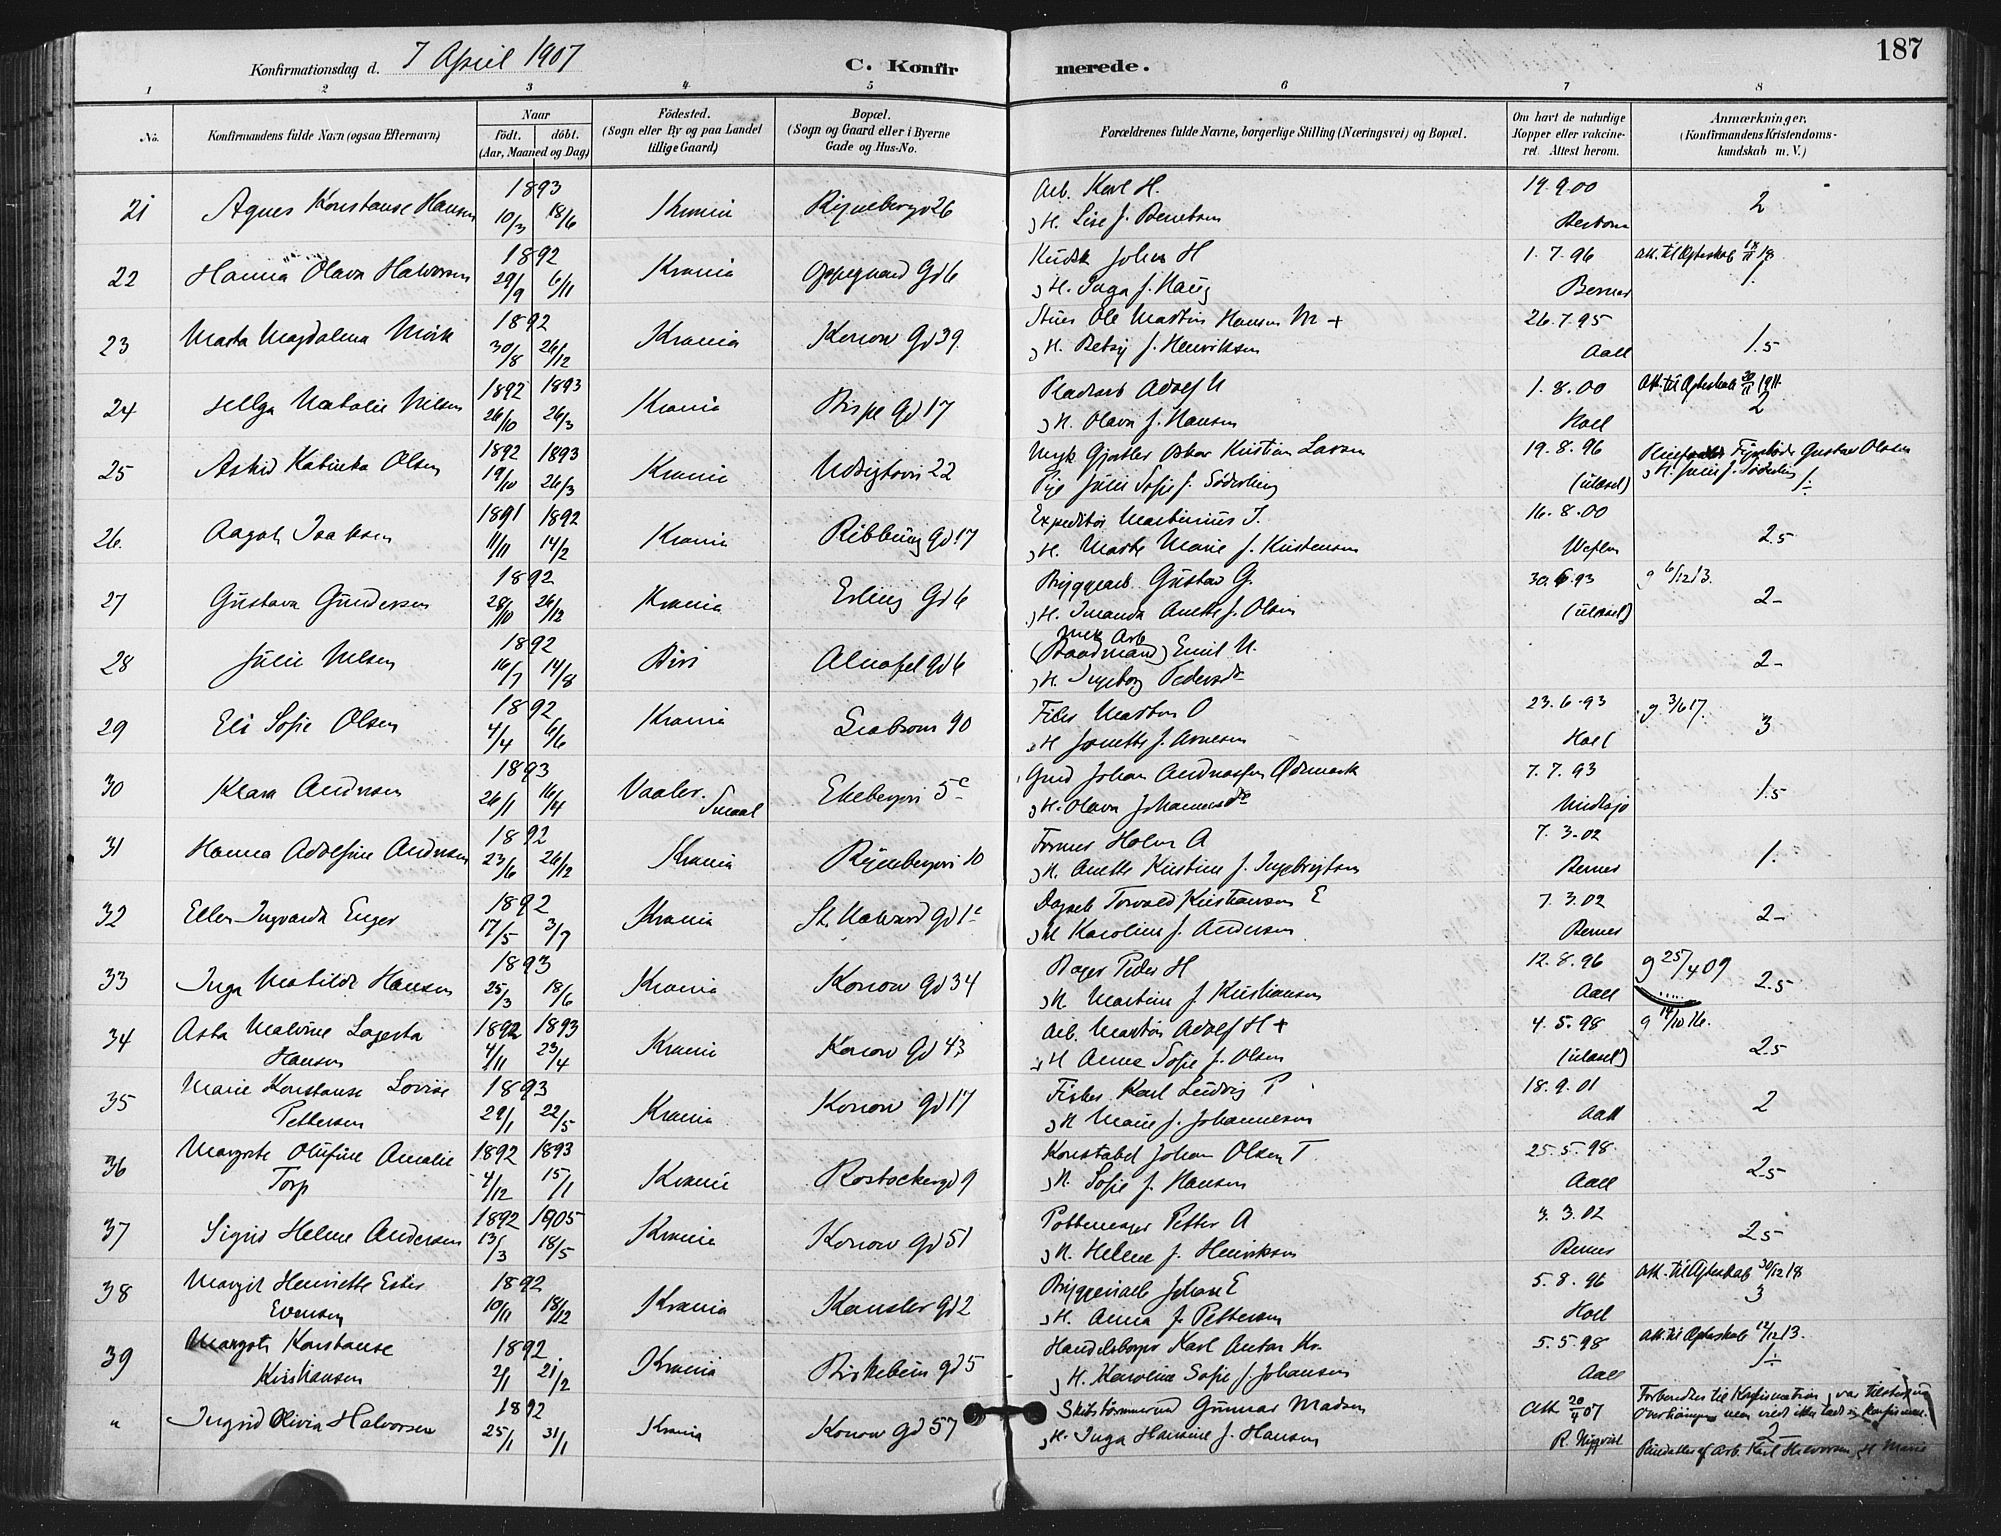 187
Konfirmationsdag d. 7 April 1907
C. Konfirmerede.
1 2 3 4 5 6 7 8
No.
Konfirmandens fulde Navn (ogsaa Efternavn)
Naar
født. døbt.
(Aar, Maaned og Dag)
Fødested.
(Sogn eller By og paa Landet
tillige Gaard)
Bopæl.
(Sogn og Gaard eller i Byerne
Gade og Hus-No.
Forældrenes fulde Navne, borgerlige Stilling (Næringsvei) og Bopæl.
Om havt de naturlige
Kopper eller vakcine-
ret. Attest herom.
Anmærkninger.
(Konfirmandens Kristendoms-
kundskab m. V.)
21 Agnes Konstanse Hansen 1893 10/3 18/6 Krania 26 Arb. Karl H. 19.9.00 2
H. Lise f. Berntsen
22 Hanna Olava Halvorsen 1892 29/9 6/11 Krania Oppegaard Gd 6 Kudsk Johan H 1.7.96 Att. til Ægteskab
H. Inga f. Haug Berner 1.
23 Marta Magdalena Mörk 1892 30/8 26/12 Krania Konow Gd 39 Ole Martin Hansen M + 26.7.95
H. Betsy f. Henriksen Aall 1.5
24 Helga Natalie Nilsen 1892 1893 26/10 26/3 Krania Bispe Gd 17 Adolf N 1.8.00 Att. til Ægteskab 30/11 1911.
H. Olava f. Hansen Hoel 2
25 Astrid Katinka Olsen 1892 1893 19/10 26/3 Krania Udsigtsvei 22 Gjørtler Oskar Kristian Larsen 19.8.96 Gustav Olsen
Pige Julie Sofie f. Söderling (ulæsel)
26. Aagot Isaksen 1891 1892 11/11 14/2 Krania Ribbung Gd 17 Expeditör Martinius I. 16.8.00 2.5
H. Marte Marie f. Kristensen
27 Gustava Gundersen 1892 28/10 26/12 Krania Erling Gd 6 Bryggearb. Gustav G. 30.6.93 g 6/12 13.
H. Amanda Anette f. Olsen (ulæsel) 2-
28 Julie Nilsen 1892 16/7 14/8 Biri Alnafet gd 6 mek Arb (Baadmand) Emil N. 2-
H. Ingeborg Pedersdr
29 Eli Sofie Olsen 1892 4/4 6/6 Krania 90 Filer Martin O 23.6.93 g. 3/6 17.
H Jonette f. Arnesen Hoel 3
30 Klara Andresen 1893 26/1 16/4 Vaaler. Smaal Ekebergvei 5c Johan Andreassen Ødemark 7.7.93 1.5
H. Olava Johannesdr
31 Hanna Adolfine Andresen 1892 23/6 26/12 Krania 10 Former Holm A 7.3.02 1.
H. Anette Kristine f. Ingebrigtsen Berner
32 Ellen Ingvarda Enger 1892 17/5 3/7 Krania St. Halvard Gd 1c Torvald Kristiansen E 7.3.02 2-
H Karoline f. Andersen Berner
33 Inga Matilde Hansen 1893 25/3 18/6 Krania Konow Gd 34 Bager Peder H 12.8.96 g 25/4 09
H Martine f Kristiansen Aall 2.5
34 Asta Malvine Lagerta 1892 1893 4/11 23/4 Krania Konow Gd 43 Arb. Martin Adolf H + 4.5.98 g 14/10 16.
Hansen H Anna Sofie f. Olsen (ulæsel) 2.5
35 Marie Konstanse Lovise 1893 29/1 22/5 Krania Konow Gd 17 Karl Ludvig P 18.9.01 2
Pettersen H Marie f. Johannesen Aall
36 Margrete Olufine Amalie 1892 1893 4/12 15/1 Krania Rostockergd 9 Konstabel Johan Olsen T 25.5.98 2.5
Torp H. Sofie f. Hansen Aall
37 Sigrid Helene Andersen 1892 1905 13/3 18/5 Krania Konow gd 51 Pottemager Petter A 3.3.02 2.5
H. Helene f. Henriksen Berner
38 Margit Henriette Ester 1892 10/11 18/12 Krania Kansler gd 2 Johan E 5.8.96 Att. til Ægteskab 30/12 18
Evensen H. Anna f. Pettersen Hoel 3
39 Margot Konstanse 1892. 2/1 21/2 Krania Birkebein gd 5 Handelsborger Karl Anton Kr. 5.5.98 Att. til Ægteskab 14/12 13.
Kristiansen H. Karoline Sofie f. Johansen Aall
" Ingrid Olivia Halvorsen 1892 25/1 31/1 Krania Konow gd 57 Skibstømmermd Gunnar Madsen Att 20/4 07 Forberedtes til Konfirmation, var tilstede ved
H. Inga Hansine f. Hansen R. Nyqvist Overhöringen men vilde ikke lade sig konfirmere.
2
Pleiedatter af Arb. Karl Halvorsen H Marie